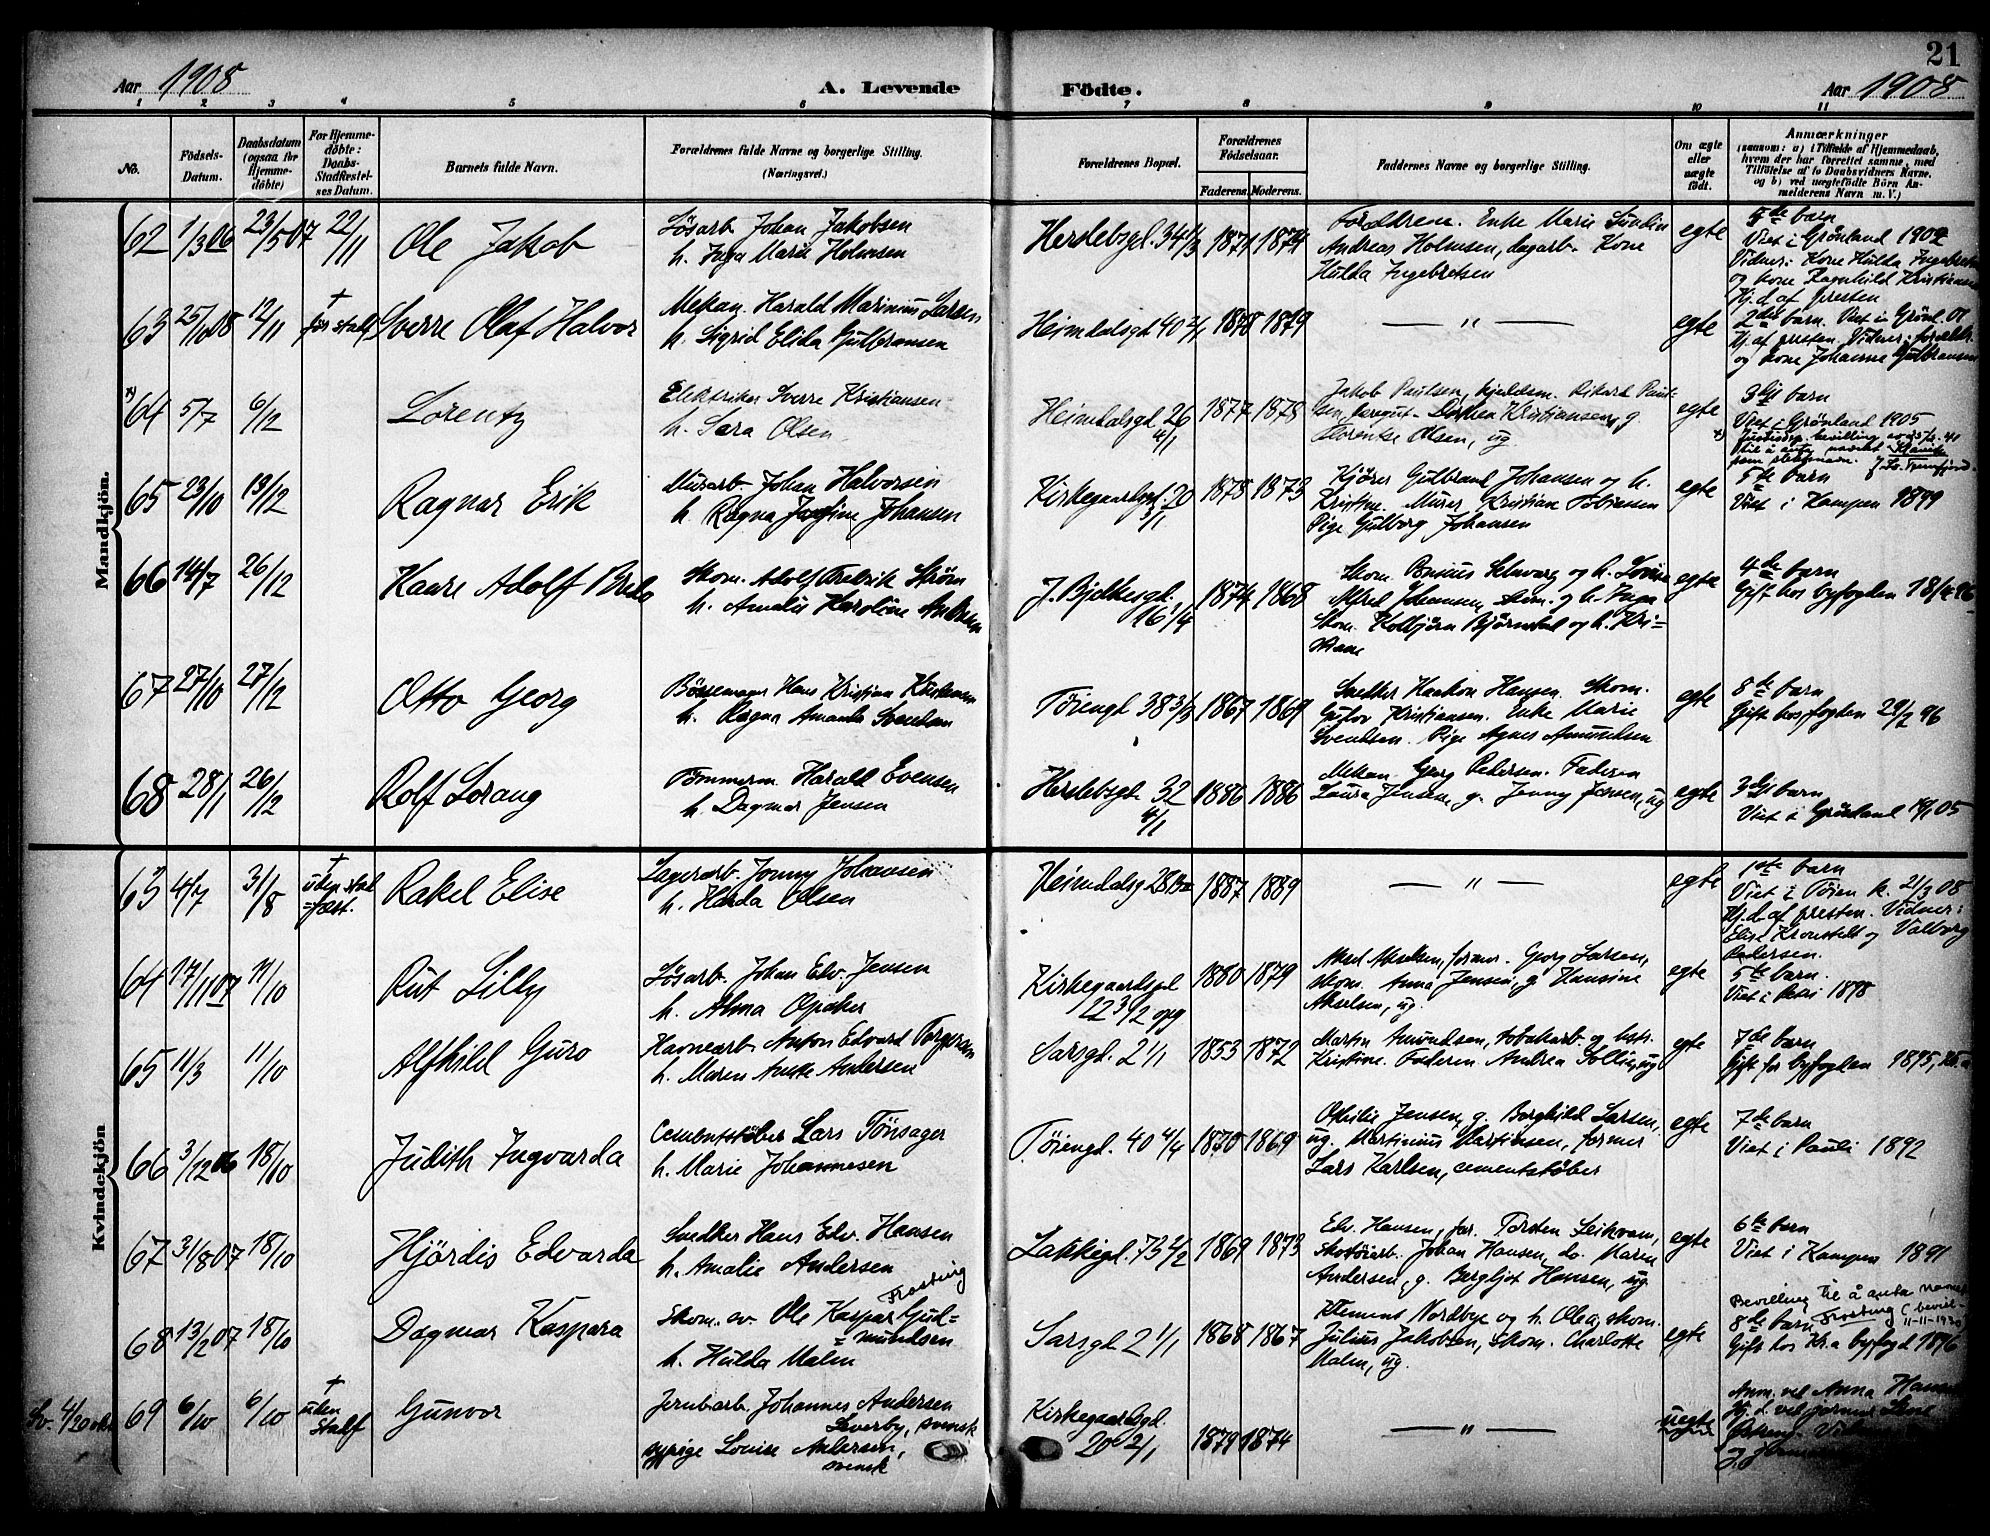 21
Aar 1908 A. Levende Fødte. Aar 1908
1 2 3 4 5 6 7 8 9 10 11
No.
Fødsels-
Datum.
Daabsdatum
(ogsaa for
Hjemme-
døbte)
For Hjemme-
døbte:
Daabs-
Stadfæstel-
ses Datum.
Barnets fulde Navn.
Forældrenes fulde Navne og borgerlige Stilling.
(Næringsvei.)
Forældrenes Bopæl.
Forældrenes
Fødselsaar.
Faderens. Moderens.
Faddernes Navne og borgerlige Stilling.
Om ægte
eller
uægte
født.
Anmærkninger
(saasom: a) i Tilfælde af Hjemmedaab,
hvem der har forrettet samme, med
Tilføielse af to Daabsvidners Navne.
og b) ved uægtefødte Børn An-
melderens Navn m. V.)
Mandkjön.
62 1/3 06 23/5 07 22/11 Ole Jakob
Løsarb. Johan Jakobsen
h. Inga Marie Holmsen
Herslebsgd. 34 4/3 1871 1874
Forældrene. Enke Marie Sundin
Andreas Holmsen, dagarb. Kone
Hulda Ingebretsen
egte
5de barn
Viet i Grønland 1902
Vidner: Kone Hulda Ingebretsen
og kone Ragnhild Kristiansen
Hj.d. af presten
63 25/10 08 12/11 + før stadf Sverre Olaf Halvor
Mekan. Harald Marinius Larsen
h. Sigrid Elida Gulbransen
Heimdalsgd 40 2/1 1878 1879
— " —
egte
2det barn. Viet i Grønl. 01
Hj. af presten. Vidner: forældr.
og kone Johanne Gulbransen
x) 64 5/7 6/12 Lorentz
Elektriker Sverre Kristiansen
h. Sara Olsen
Heimdalsgd 26
4/1
1877 1878
Jakob Paulsen, kjeldsm. Rikard Paul-
sen, Dorthea Kristiansen, g.
Florentse Olsen, ug.
egte
3dje barn
Viet i Grønland 1905
x) Justisdep. bevilling av
til å anta navnet
som slektsnavn.
65 23/10 13/12 Ragnar Erik
Murarb. Johan Halvorsen
h. Ragna Josefine Johansen
Kirkegaardsgd. 20
3/1
1875 1873
Kjører Gulbrand Johansen og h.
Kristine. Murer Kristian Tobiassen
Pige Gulborg Johansen
egte
5te barn
Viet i Kampen 1899
66 14/7 26/12 Kaare Adolf Brede
Skom. Adolf Fredrik Strøm
h. Amalie Karoline Andersen
J. Bjelkesgd.
16 1/4
1874 1868
Skom. Schwarz og h. Lovise
Alfred Johansen, skom. og h. Inga
Skom. Kolbjørn Bjørnstad og h. Kri=
stiane
egte
4de barn
Gift hos byfogden 18/4 96
67 27/10 27/12 Otto Georg
Bøssemager Hans Kristian Kristiansen
h. Ragna Amanda Svendsen
Tøiengd 38 3/3 1867 1869
Snedker Haakon Hansen. Skom.
Gustav Kristiansen. Enke Marie
Svendsen. Pige Agnes Amundsen
egte
8de barn
Gift hos fogden 29/2 96
68 28/1 26/12 Rolf Lorang
Tømmerm. Harald Evensen
h. Dagmar Jensen
Herslebsgd 32
4/1
1886 1886
Mekan. Georg Pedersen. Faderen
Laura Jensen, g. Jenny Jensen, ug
egte
3dje barn
Viet i Grønland 05
Kvindekjön
63 4/7 31/8 + uden stad
=fæst. Rakel Elise
Lagerarb. Jonny Johansen
h. Harda Olsen
Heimdalsgd 28 1887 1889
— " —
egte
1ste barn
Viet i Tøien k. 21/3 08
Hj.d. af presten. Vidner:
Elise Kronstedt og Valborg
Pedersen.
64 17/11 07 11/10 Rut Lilly
Løsarb. Johan Edv. Jensen
h. Alma Opaker
Kirkegaardsgd
12 3/2 opg
1880 1879
Aksel Akselsen, former. Georg Larsen,
skom. Anna Jensen, g. Hansine
Akselsen, ug.
egte
5te barn.
Viet i Petri 1898
65 11/3 11/10 Alfhild Guro
Havnearb. Anton Edvard Torgersen
h. Maren Anske Andersen
Sarsgd. 2 1/1 1853 1872
Martin Amundsen, tobakarb. og hstr.
Kristine. Faderen Andrea Solling, ug
egte
7de barn
Gift for byfogden 1895, Kr.a
66 3/12 06 18/10 Judith Ingvarda
Cementstøber Lars Tönsager
h. Marie Johannesen
Tøiengd. 40 4/4 1870 1869
Othilie Jensen, g. Borghild Larsen,
ug. Martinius Martinsen, former
Lars Karlsen, cementstøber
egte
7de barn
Viet i Pauli 1892
67 31/8 07 18/10 Hjördis Edvarda
Snedker Hans Edv. Hansen
h. Amalie Andersen
Lakkegd. 73 2/2 1869 1873
Edv. Hansen, for. Torsten Leikvam,
Skotøiarb. Johan Hansen, do. Maren
Andersen, g. Bergljot Hansen, ug.
egte
6te barn
Viet i Kampen 1891
68 13/2 07 18/10 Dagmar Kaspara
Frosting
Skom. sv. Ole Kaspar Gud=
=mundsen
h. Hulda Malm
Sarsgd. 2 1/1 1868 1867
Klemens Nordbye og h. Olea, skom.
Julius Jakobsen, skom. Charlotte
Malm, ug.
egte
Bevilling til å anta navnet
Frosting (bevil-
11-11-1930)
8de barn
Gift hos Kr.a byfogd 1896
Sv. 4/20 69 6/10 6/10 + uden
stadf Gunvor
Jernbarb. Johannes Andersen
Säverby, svensk
sypige Louise Andersen,
svensk
Kirkegaardsgd.
20 2/1
1879 1874
— " —
uegte
Anm. ved Anna Hansen
Hj. d. ved jormor